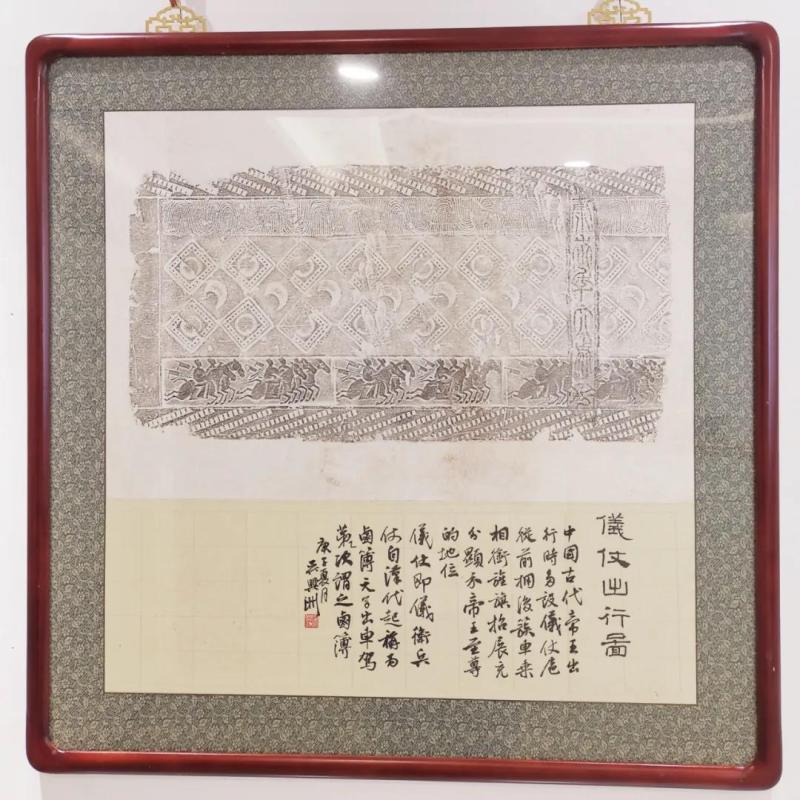 儀仗出行圖
中國古代帝王出
行時多設儀仗扈
從前擁後簇車乘
相銜旌旗招展充
分顯示帝王至尊
的地位
儀仗即儀衛兵
仗自漢代起稱為
鹵簿天子出車駕
第次謂之鹵簿
庚子夏月